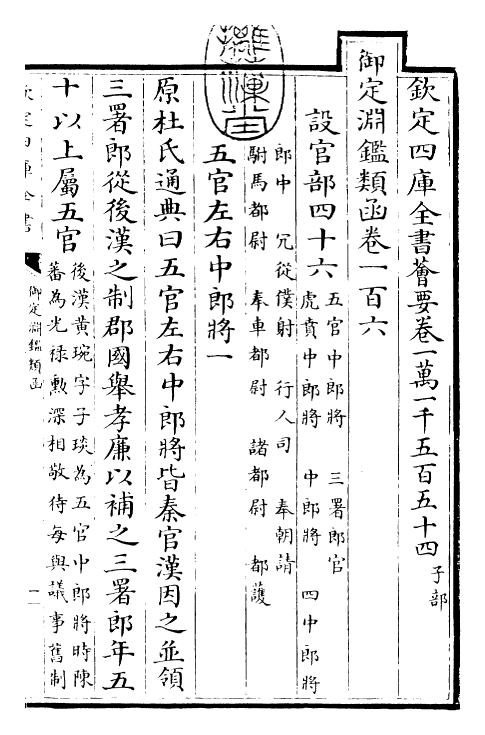 欽定四庫全書薈要卷一萬一千五百五十四 子部
御定淵鑑類函卷一百六
設官部四十六 五官中郎將 三署郎官
虎賁中郎將 中郎將 四中郎將
郎中 冗從僕射 行人司 奉朝請
駙馬都尉 奉車都尉 諸都尉 都護
五官左右中郎將一
原杜氏通典曰五官左右中郎將皆秦官漢因之並領
三署郎從後漢之制郡國舉孝廉以補之三署郎年五
十以上屬五官 後漢黃琬字子琰為五官中郎將時陳
蕃為光祿勲深相敬待每與議事舊制
欽定四庫全書
御定淵鑑類函
一
摛藻堂